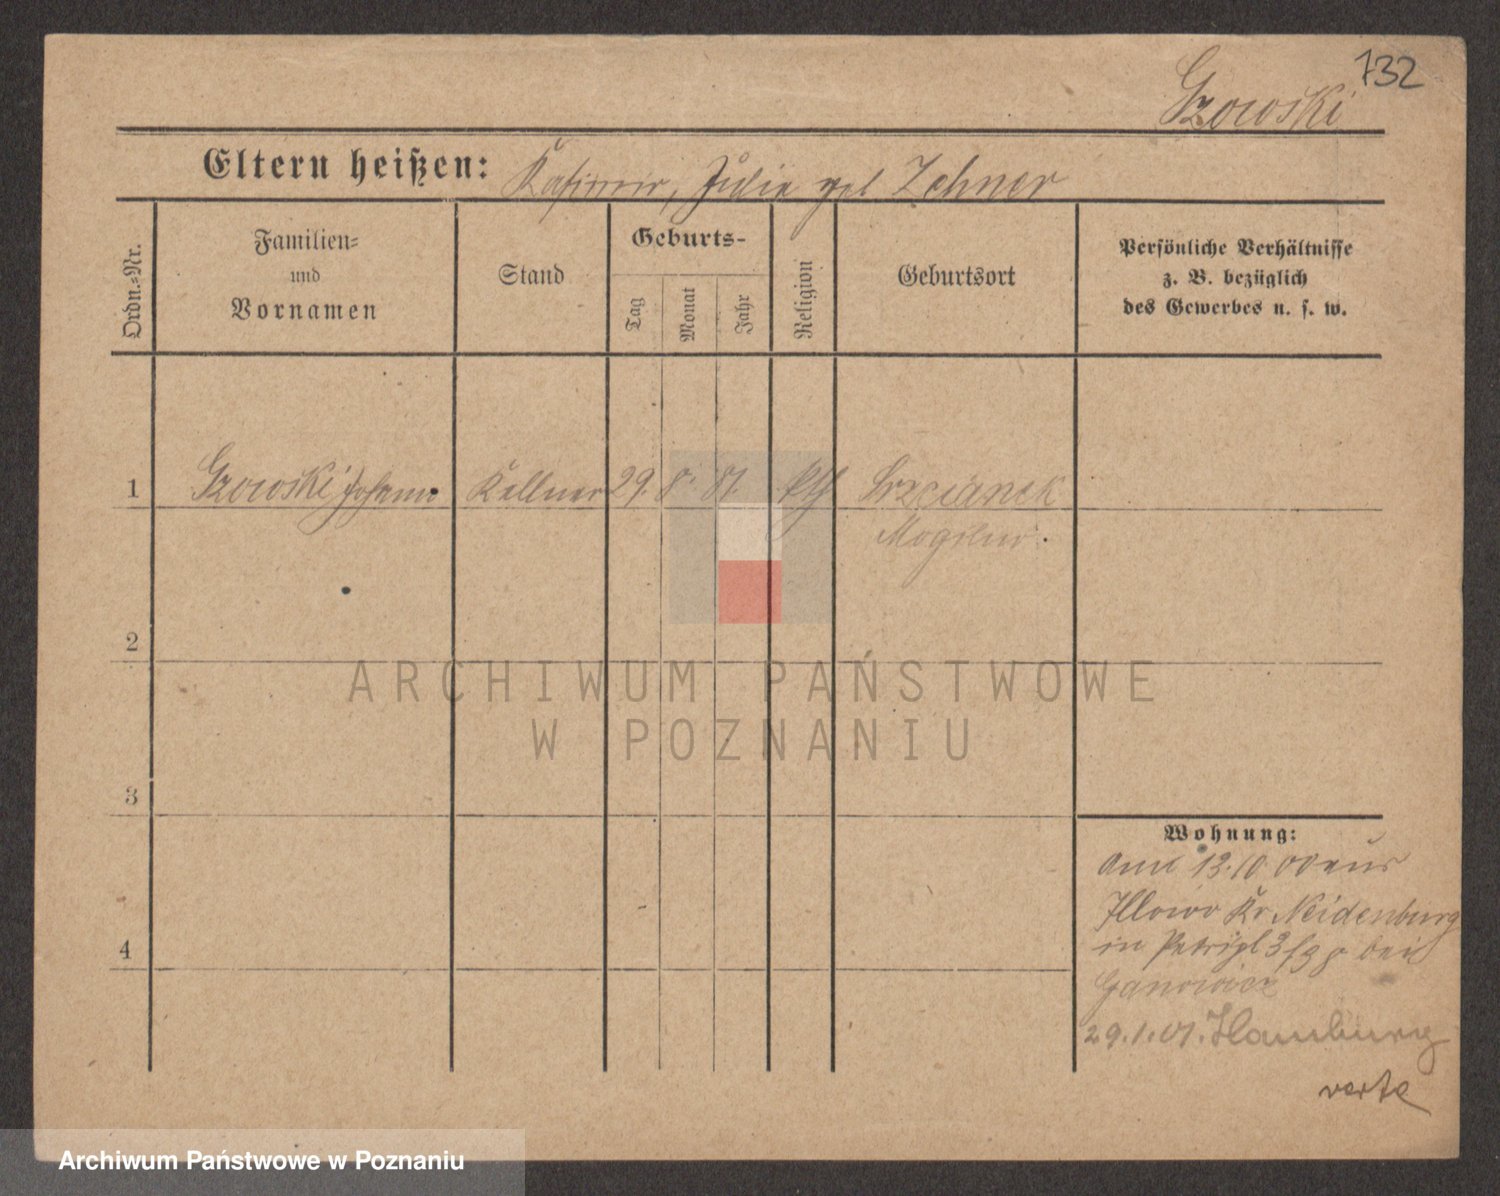 732
Gzowski
Eltern heißen: Kasimir, Julie geb Zehner
Ordn.=Nr.
Familien=
und
Vornamen
Stand
Geburts-
Tag
Monat
Jahr
Religion
Geburtsort
Persönliche Verhältnisse
z. B. bezüglich
des Gewerbes u. s. w.
1 Gzowski Johann Kellner 29. 8. 81. kth
Mogilno.
2
3
4
Wohnung:
Anm 13.10.00 aus
Illowo Kr Neidenburg
in Petripl 3 bei
Ganowicz
29.1.01. Hamburg
verte
ARCHIWUM PAŃSTWOWE
W POZNANIU
Archiwum Państwowe w Poznaniu